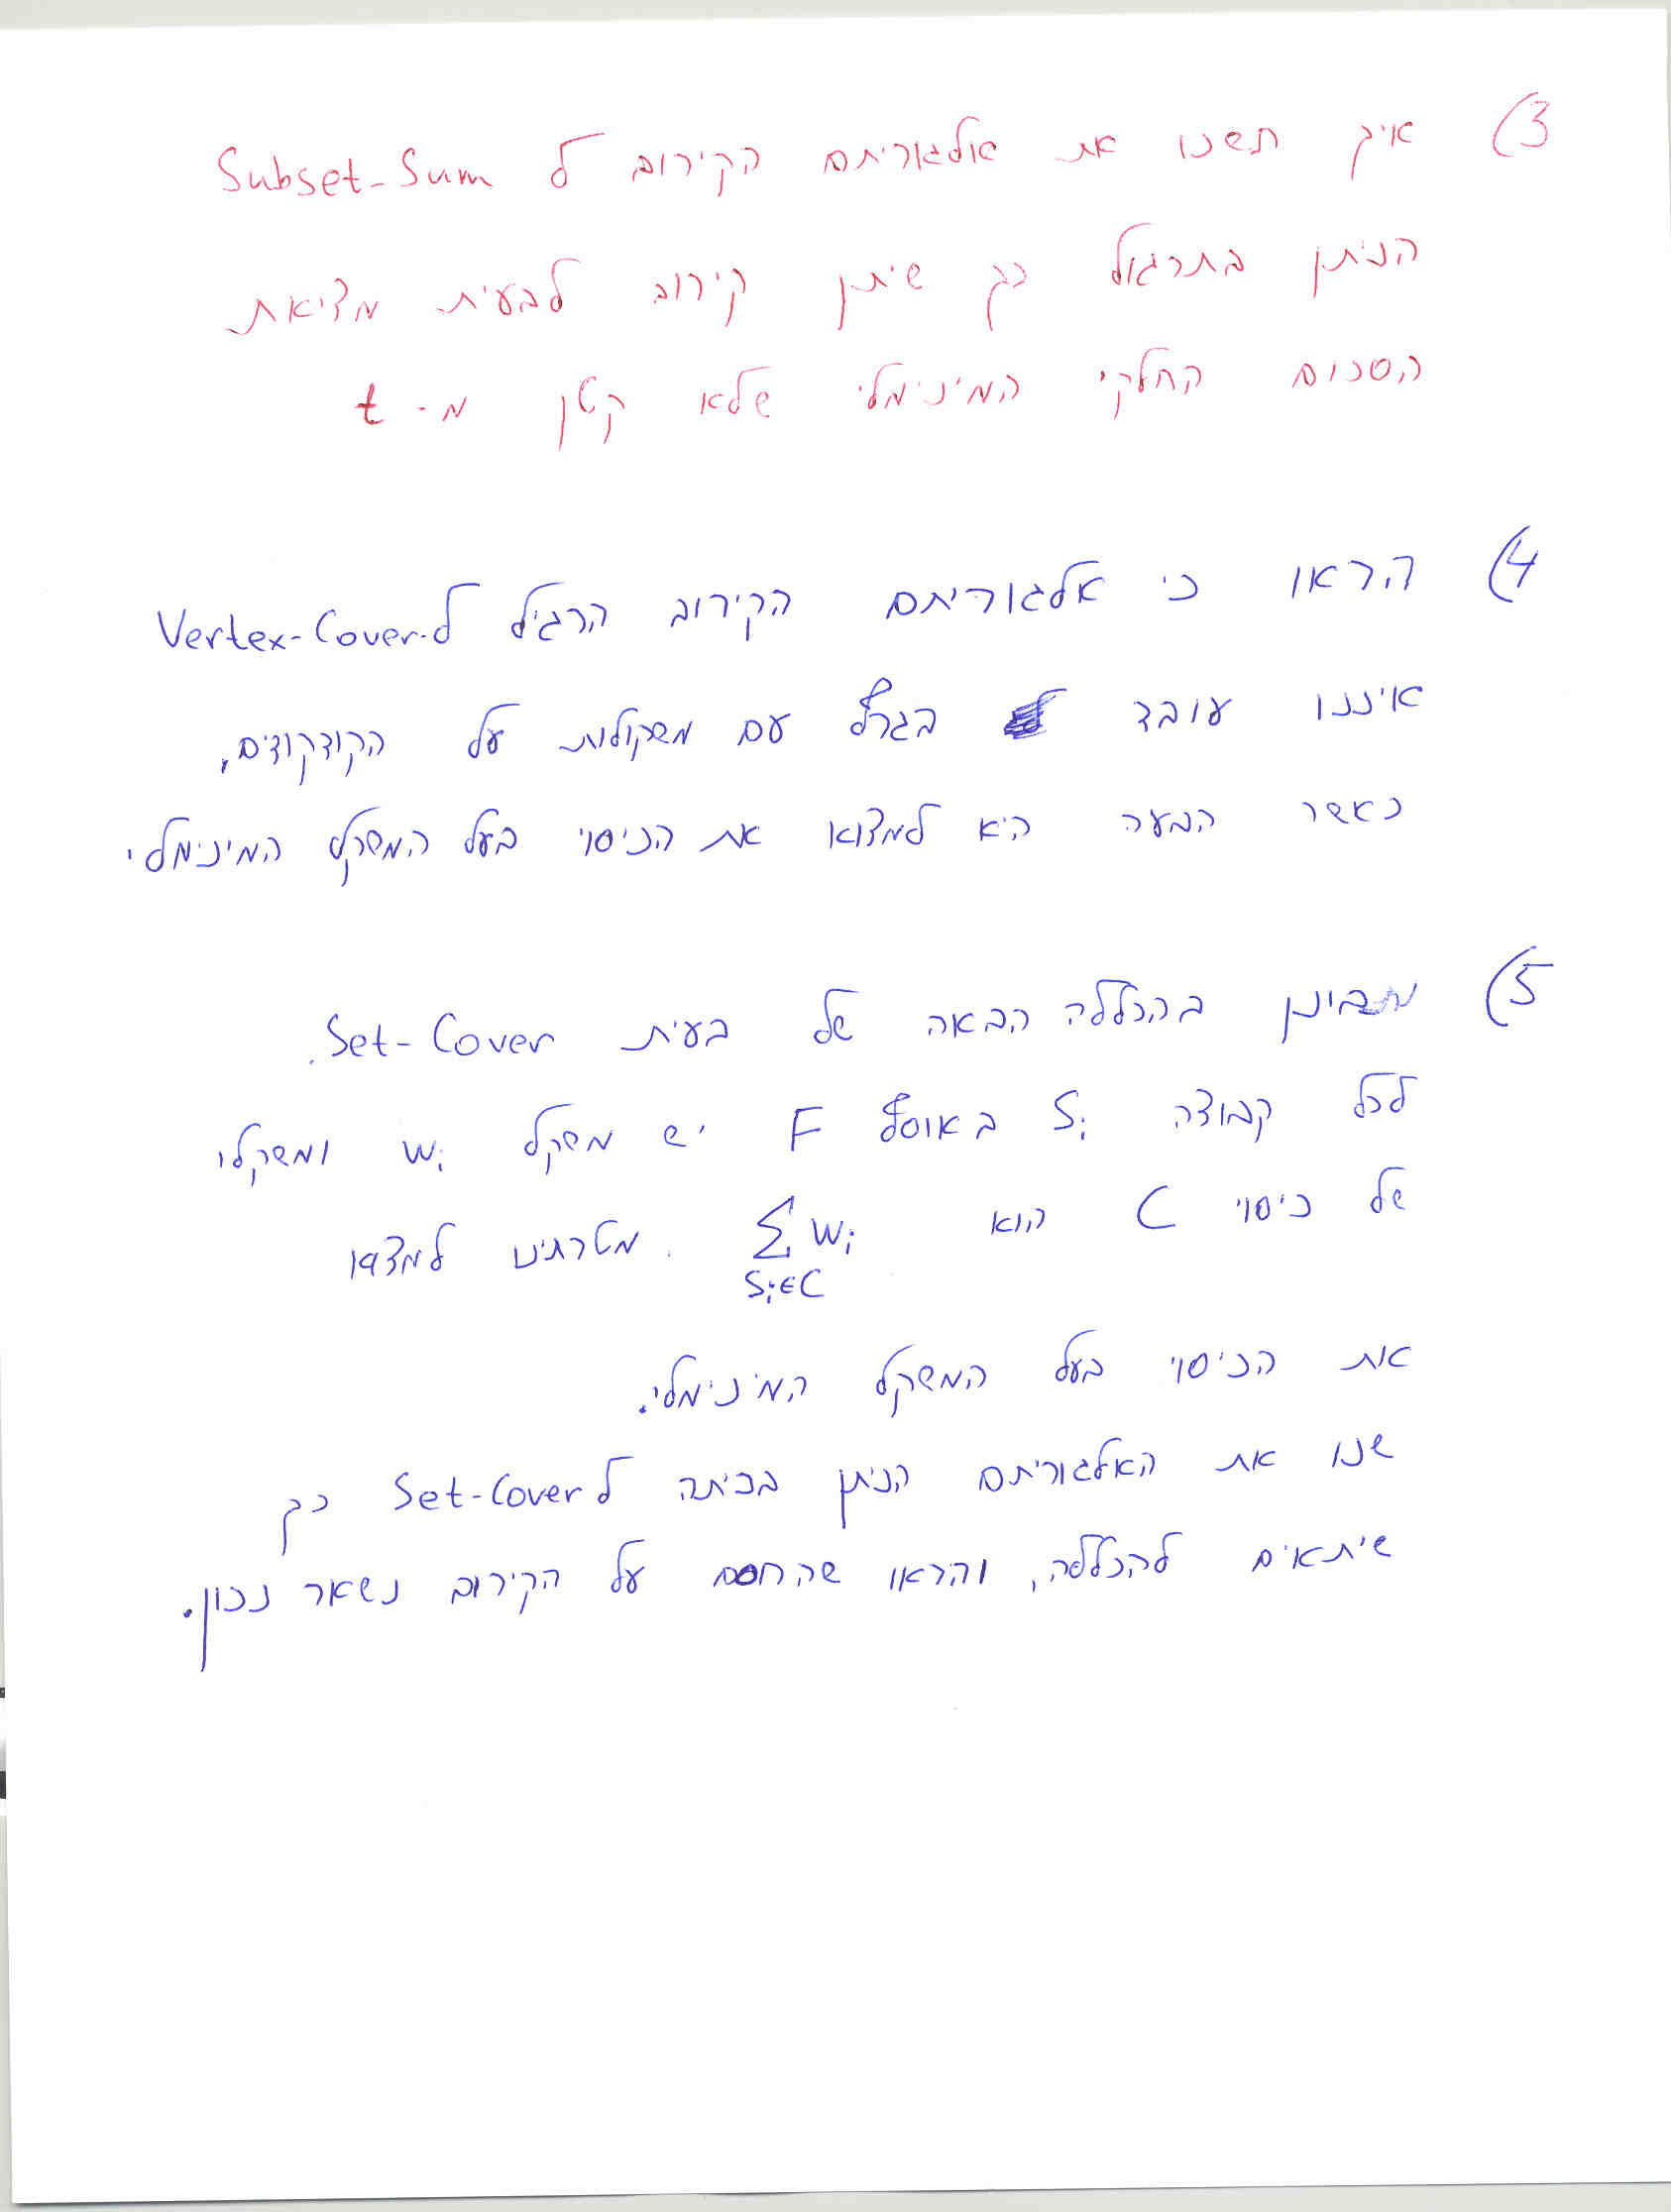 3) איך תשנו את אלגוריתם הקירוב ל Subset-Sum
הניתן בתרגול כך שיתן קירוב לבעית מציאת
הסכום החלקי המינימלי שלא קטן מ- t
4) הראו כי אלגוריתם הקירוב הרגיל ל-Vertex-Cover
איננו עובד בגרף עם משקולות על הקודקודים,
כאשר הבעה היא למצוא את הכיסוי בעל המשקל המינימלי
5) נתבונן בהכללה הבאה של בעית Set-Cover.
לכל קבוצה Si באוסף F יש משקל wi ומשקלו
של כיסוי C הוא ∑ wi . מטרתינו למצוא
Si∈C
את הכיסוי בעל המשקל המינימלי.
שנו את האלגוריתם הניתן בכיתה ל Set-Cover כך
שיתאים להכללה, והראו שהחסם על הקירוב נשאר נכון.